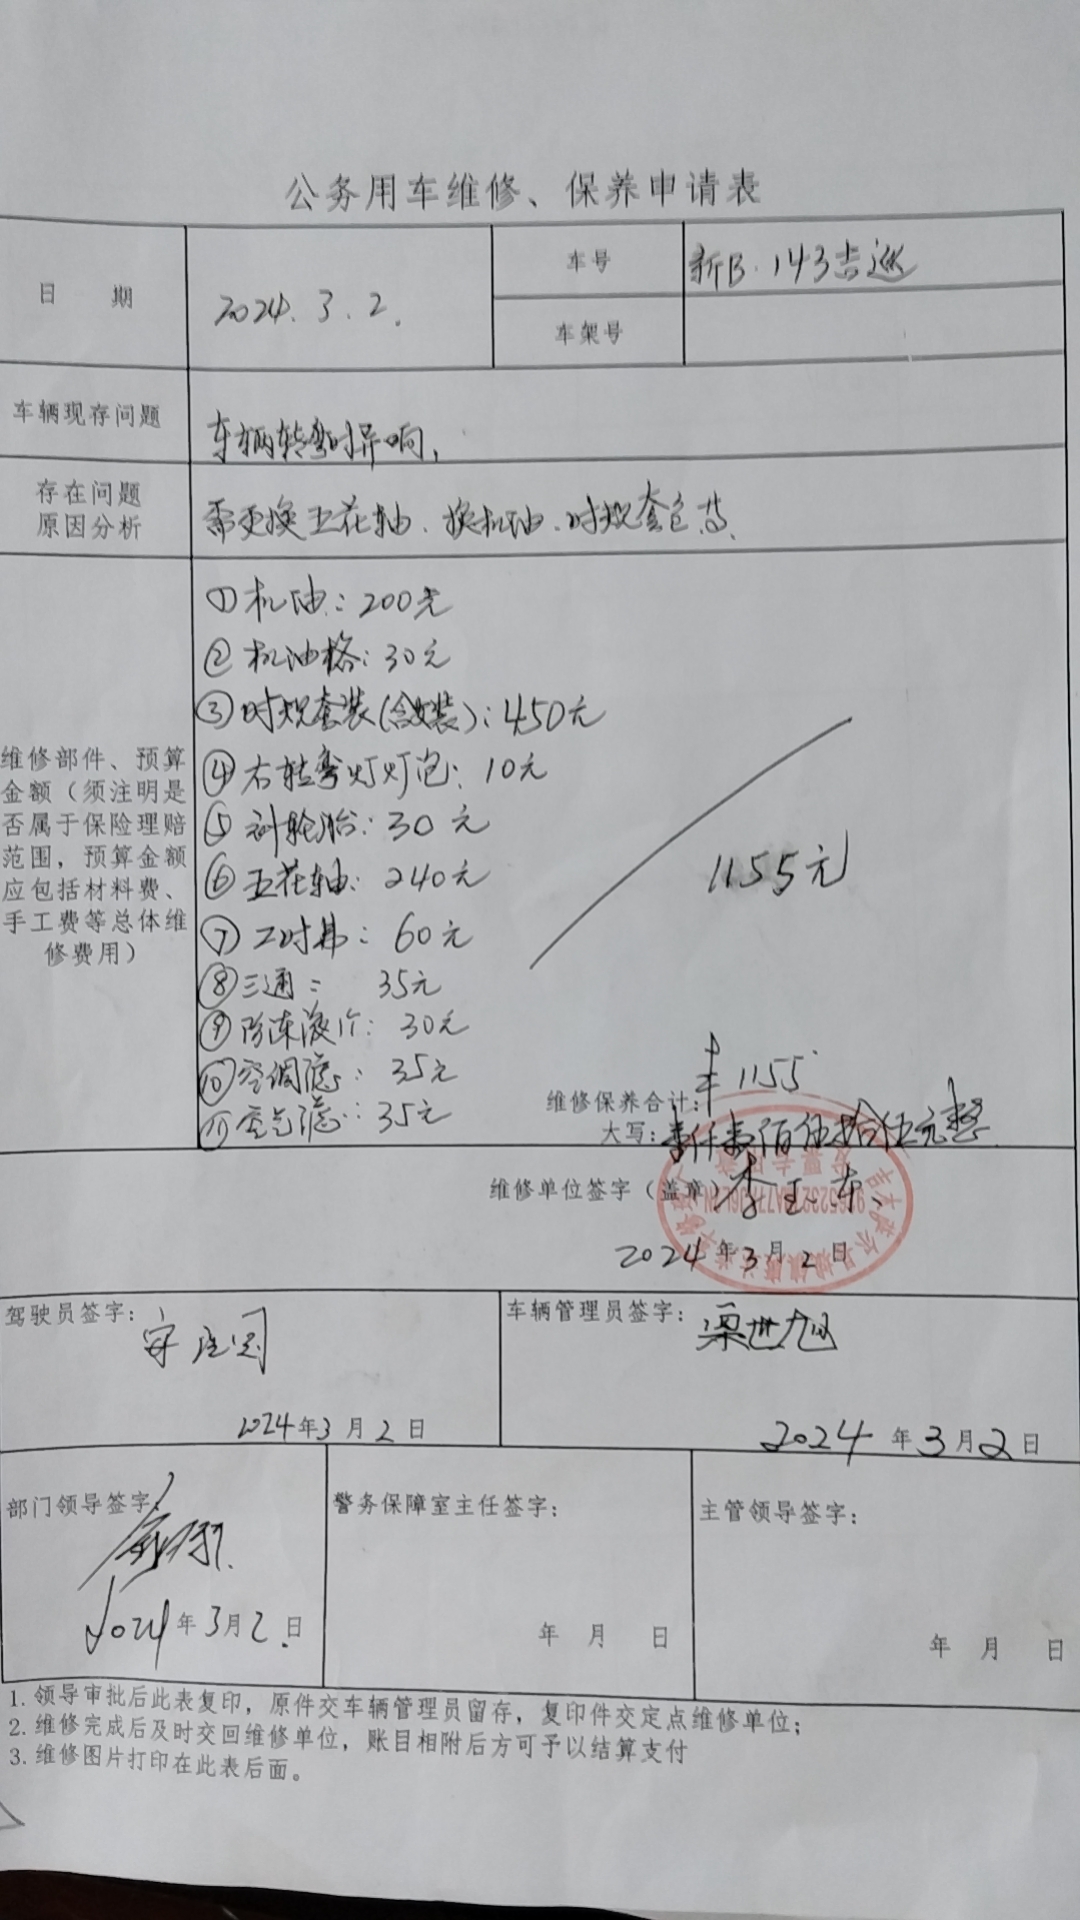 公务用车维修、保养申请表
日 期
2024.3.2.
车号
新B·143吉巡
车架号
车辆现存问题
车辆转弯时异响,
存在问题
原因分析
需更换五花轴.换机油.时规套包等.
维修部件、预算
金额（须注明是
否属于保险理赔
范围，预算金额
应包括材料费、
手工费等总体维
修费用）
①机油:200元
②机油格:30元
③时规套装(含安装):450元
④右转弯灯灯泡:10元
⑤补轮胎:30元
⑥五花轴:240元
⑦工时费:60元
⑧三通: 35元
⑨防冻液1个:30元
⑩空调滤:35元
⑪空气滤:35元
1155元
维修保养合计:¥1155
大写:壹仟壹佰伍拾伍元整
维修单位签字（盖章）李玉东
2024年3月2日
驾驶员签字:
2024年3月2日
车辆管理员签字:
梁世旭
2024年3月2日
部门领导签字:
2024年3月2日
警务保障室主任签字:
年 月 日
主管领导签字:
年 月 日
1.领导审批后此表复印，原件交车辆管理员留存，复印件交定点维修单位；
2.维修完成后及时交回维修单位，账目相附后方可予以结算支付
3.维修图片打印在此表后面。